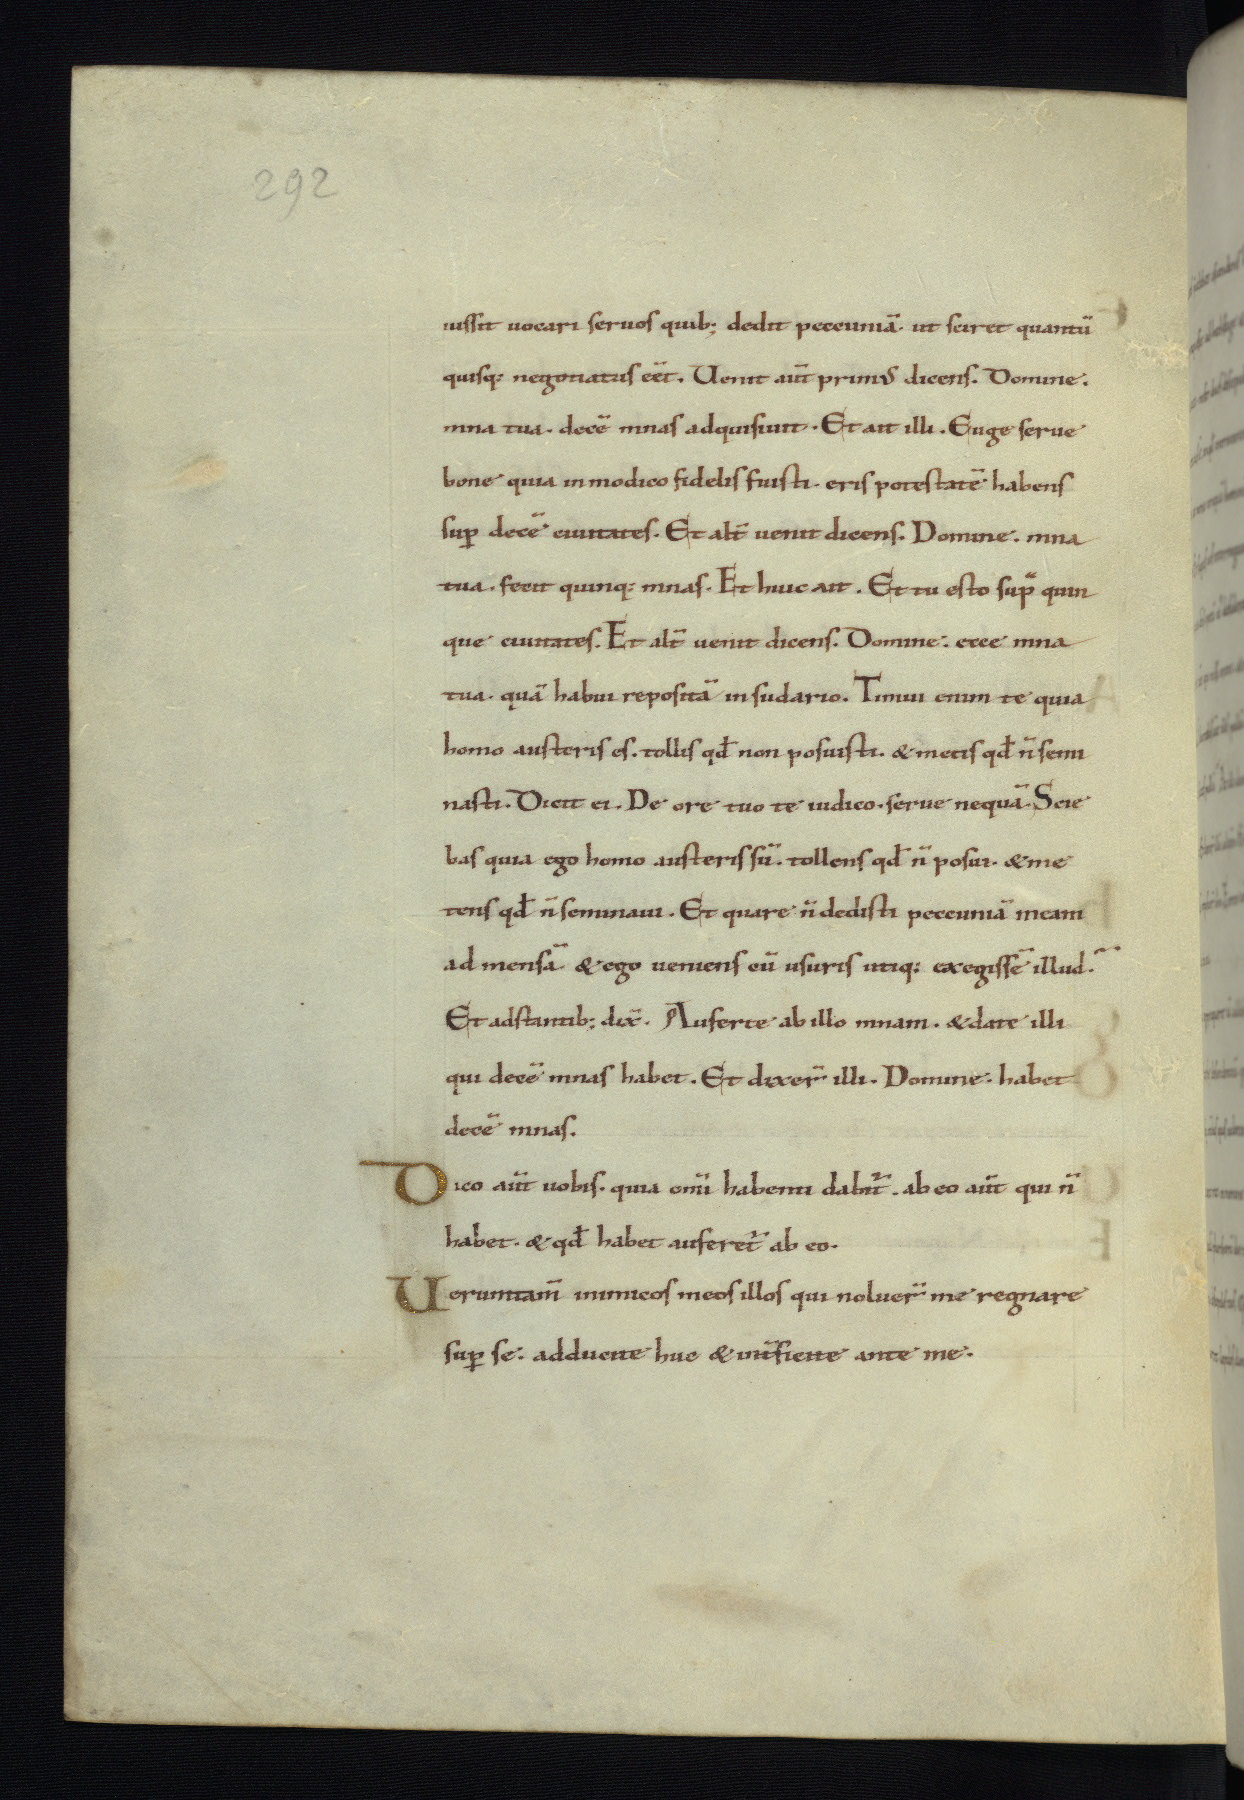 292
iussit uocari seruos quib; dedit peccuniā. ut sciret quantū
quisq; negotiatus eēt. Uenit aūt primus dicens. Domine.
mna tua. decē mnas adquisiuit. Et ait illi. Euge serue
bone quia in modico fidelis fuisti. eris potestatē habens
sup̄ decē ciuitates. Et alt̄ uenit dicens. Domine. mna
tua. fecit quinq; mnas. Et huic ait. Et tu esto sup̄ quin
que ciuitates. Et alt̄ uenit dicens. Domine. ecce mna
tua. quā habui repositā in sudario. Timui enim te quia
homo austeris es. tollis qđ non posuisti. & metis qđ n̄ semi
nasti. Dicit ei. De ore tuo te iudico. serue nequā. Scie
bas quia ego homo austeris sū. tollens qđ n̄ posui. & me
tens qđ n̄ seminaui. Et quare n̄ dedisti peccuniā meam
ad mensā. & ego ueniens cū usuris utiq; exegissē illud.
Et adstantib; dix̄. Auferte ab illo mnam. & date illi
qui decē mnas habet. Et dixer̄ illi. Domine. habet
decē mnas.
Dico aūt uobis. quia omī habenti dabit̄. ab eo aūt qui n̄
habet. & qđ habet auferet̄ ab eo.
Ueruntam̄ inimicos meos illos qui noluer̄ me regnare
sup̄ se. adducite huc & int̄ficite ante me.